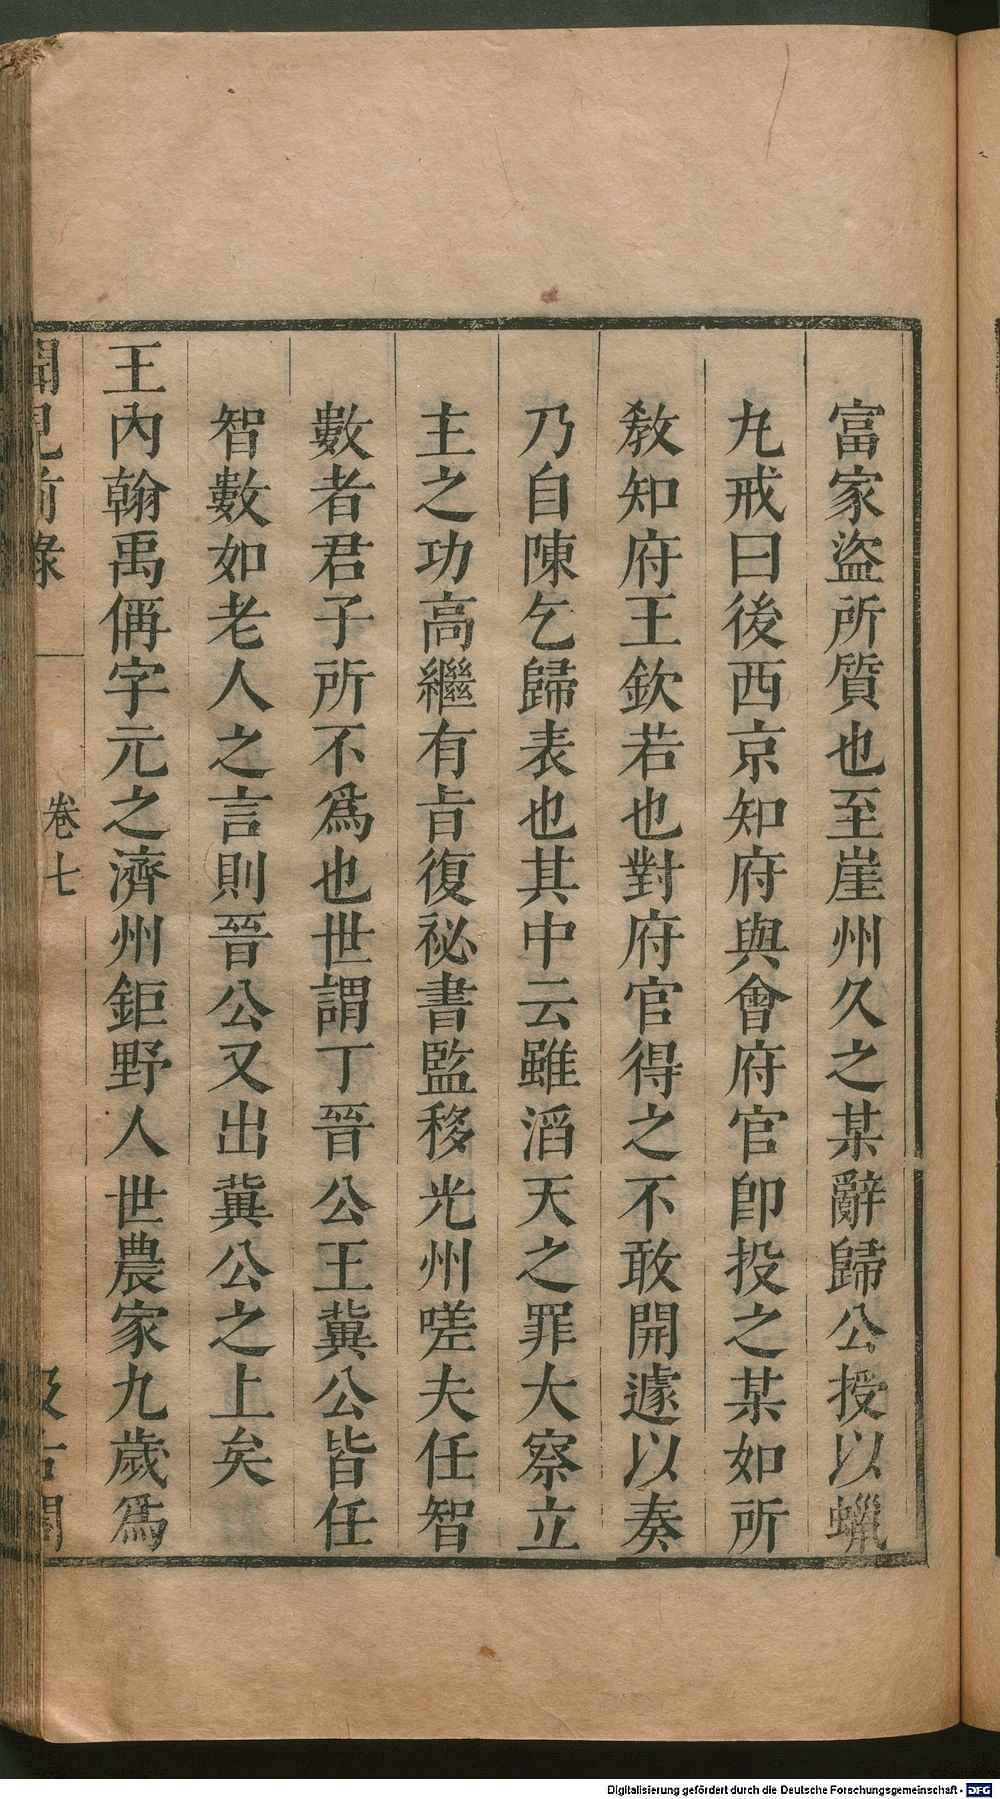 富家盜所質也至崖州久之某辭歸公授以蠟
丸戒曰後西京知府與會府官卽投之某如所
敎知府王欽若也對府官得之不敢開遽以奏
乃自陳乞歸表也其中云雖滔天之罪大察立
主之功高繼有㫖復祕書監移光州嗟夫任智
數者君子所不爲也世謂丁晉公王冀公皆任
智數如老人之言則晉公又出冀公之上矣
王內翰禹偁字元之濟州鉅野人世農家九歲爲
聞見前錄 卷七 汲古閣
Digitalisierung gefördert durch die Deutsche Forschungsgemeinschaft - DFG